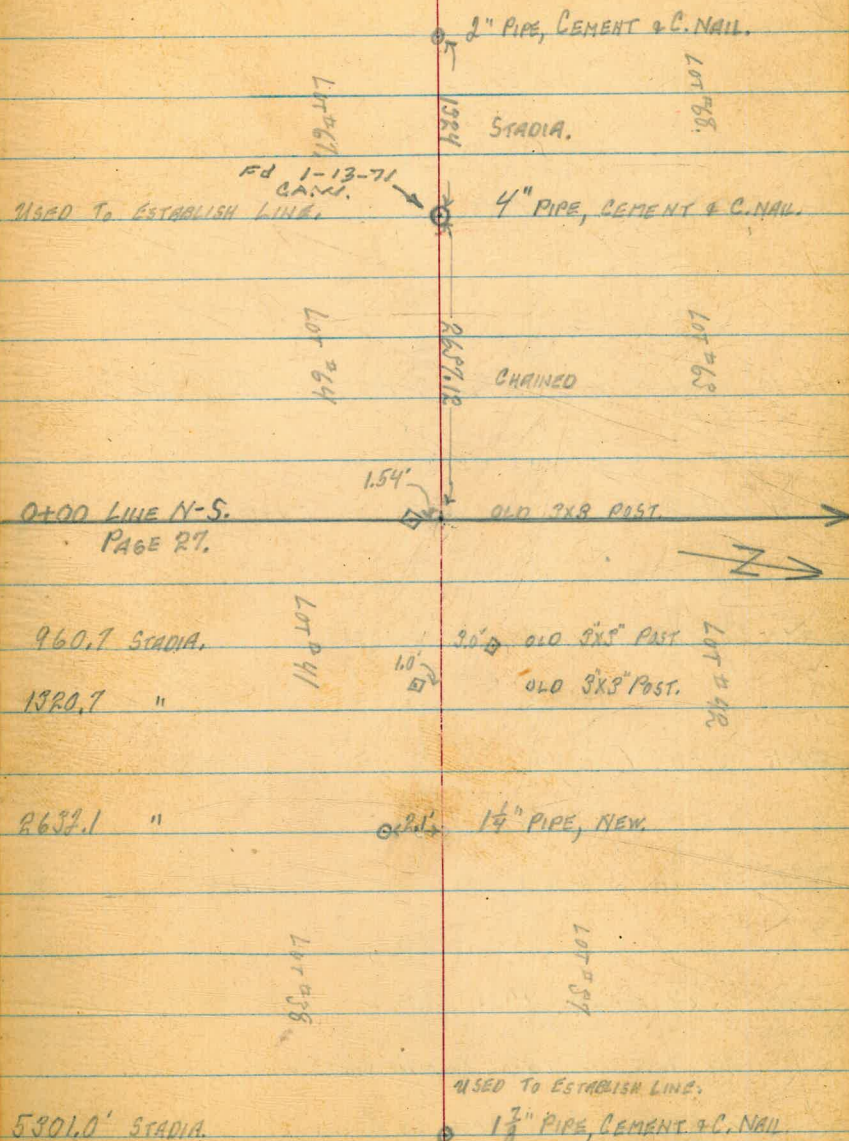 2" PIPE, CEMENT & C. NAIL.
LOT #67
1324
STADIA.
LOT #68
Fd 1-13-71
USED TO ESTABLISH LINE.
4" PIPE, CEMENT & C. NAIL.
LOT #64
CHAINED
LOT #63
1.54'
0+00 LINE N-S.
OLD 3X3 POST.
PAGE 27.
N
960.7 STADIA.
LOT #41
3.0'
OLD 3"X3" POST
LOT #42
1.0'
1320.7 "
OLD 3"X3" POST.
2632.1 "
2.1'
1 1/4" PIPE, NEW.
LOT #38
LOT #37
USED TO ESTABLISH LINE.
5301.0' STADIA.
PIPE, CEMENT & C. NAIL